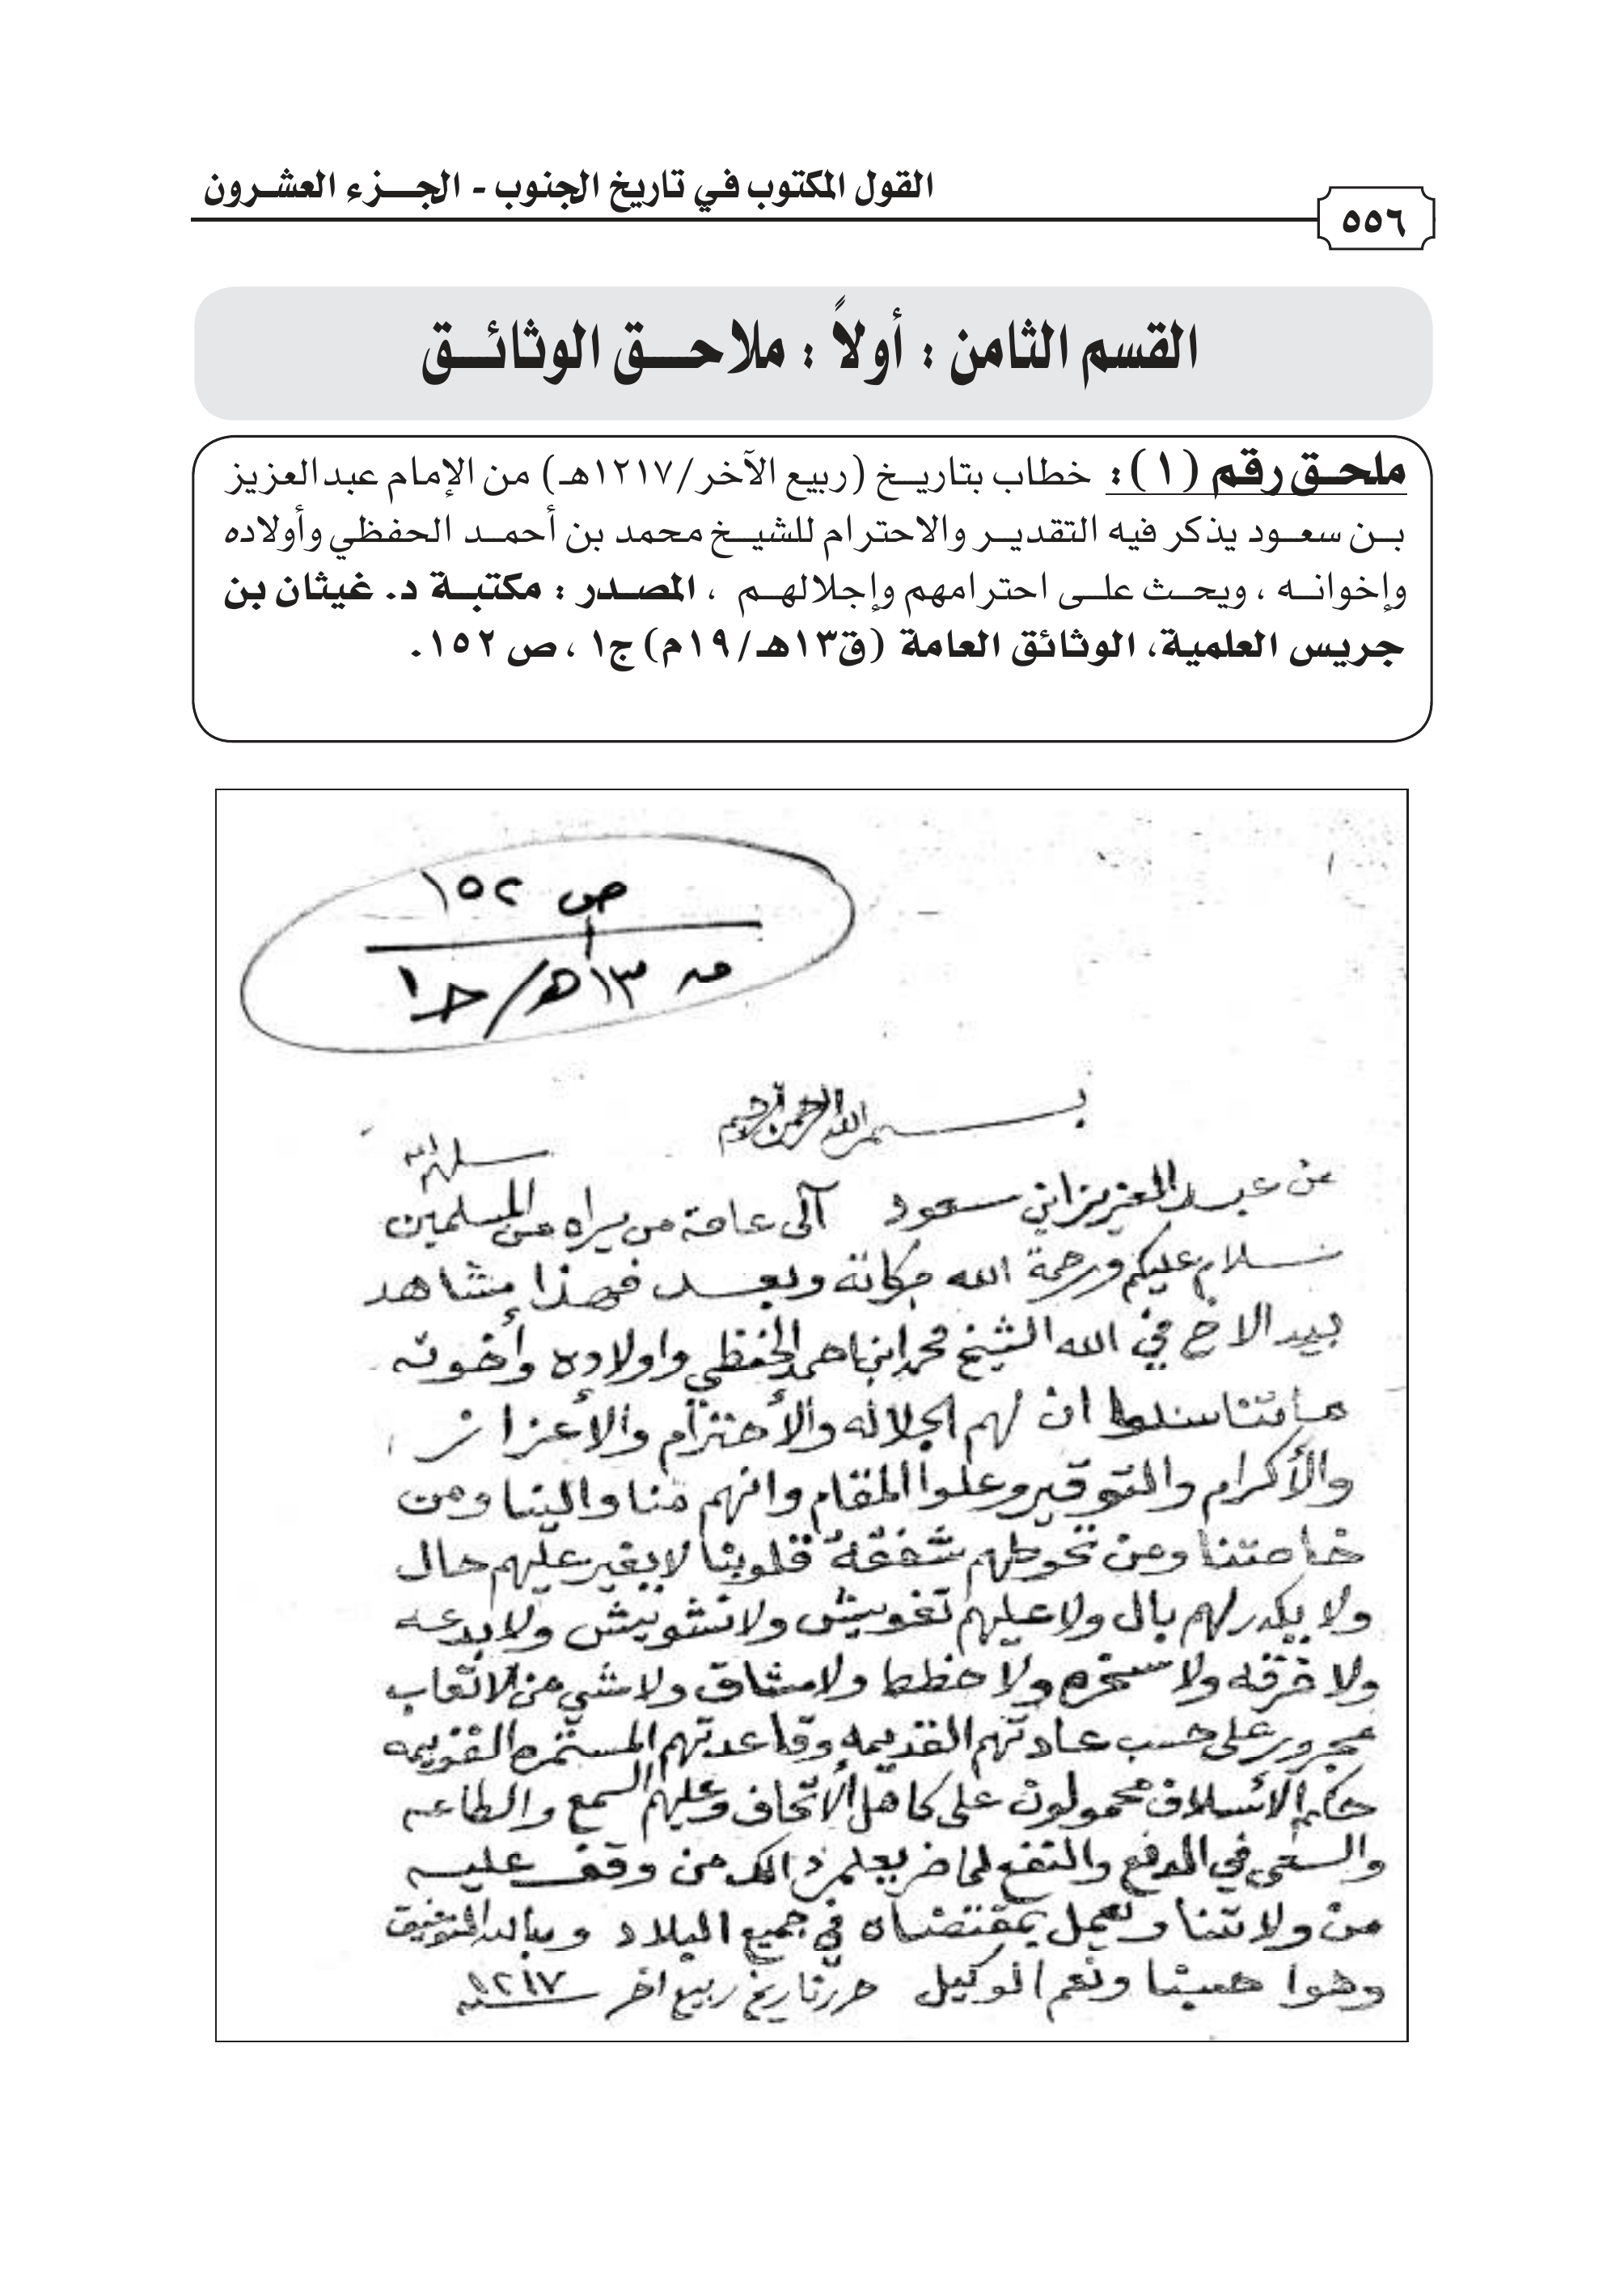 القول المكتوب في تاريخ الجنوب - الجـــزء العشـرون
٥٥٦
القسم الثامن : أولاً : ملاحـــق الوثائـــق
ملحـق رقم (١): خطاب بتاريـخ (ربيع الآخر/١٢١٧هـ) من الإمام عبدالعزيز
بـن سعـود يذكر فيه التقديـر والاحترام للشيـخ محمد بن أحمـد الحفظي وأولاده
وإخوانـه ، ويحـث علـى احترامهم وإجلالهـم ، المصـدر : مكتبـة د. غيثان بن
جريس العلمية، الوثائق العامة (ق١٣هـ/١٩م) ج١ ، ص ١٥٢.
ص ١٥٢
١٣هـ/ج١
بسم الله الرحمن الرحيم
سلمهم الله
من عبد العزيز ابن سعود آلى عامة من يراه من المسلمين
سلام عليكم ورحمة الله وبركاته وبعد فهذا مشاهد
بيد الاخ في الله الشيخ محمد ابن احمد الحفظي واولاده وأخوته
ما تناسلوا ان لهم الجلاله والأحترام والأعزاز
والأكرام والتوقير وعلوا المقام وانهم منا والينا ومن
خاصتنا ومن تحوطهم شفقة قلوبنا لا يغير عليهم حال
ولا يكدر لهم بال ولا عليهم تغويش ولا تشويش ولا بدعه
ولا خرقه ولا سخره ولا خطط ولا مشاق ولا شي من الاتعاب
على حسب عادتهم القديمه وقاعدتهم المستمره القويمه
الأسلاف محمولون على كاهل الاتحاف وعليهم السمع والطاعه
والسعى في الدفع والنفع يعلم ذالك من وقف عليه
من ولاتنا ويعمل بمقتضاه في جميع البلاد وبالله التوفيق
وهوا حسبنا ونعم الوكيل حرر تاريخ ربيع اخر ١٢١٧